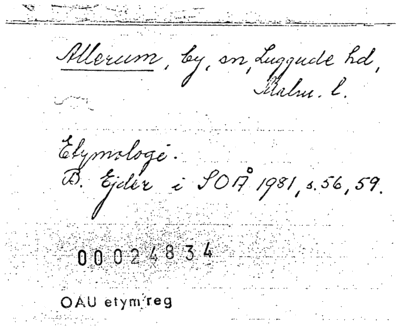 Allerum, by, sn, Luggude hd,
Malm. l.
Etymologi.
B. Ejder i SOÅ 1981, s. 56, 59.
00024834
OAU etym reg